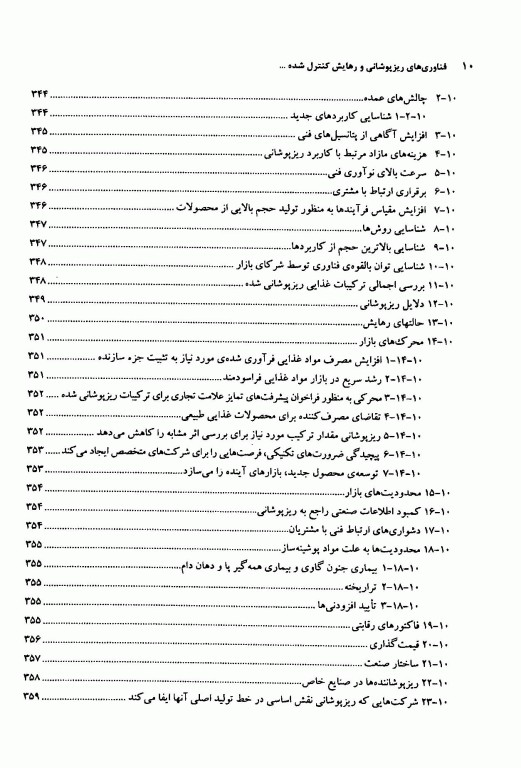 ۱۰ فناوری‌های ریزپوشانی و رهایش کنترل شده ...
۱۰-۲ چالش‌های عمده ... ۳۴۴
۱۰-۲-۱ شناسایی کاربردهای جدید ... ۳۴۴
۱۰-۳ افزایش آگاهی از پتانسیل‌های فنی ... ۳۴۵
۱۰-۴ هزینه‌های مازاد مرتبط با کاربرد ریزپوشانی ... ۳۴۵
۱۰-۵ سرعت بالای نوآوری فنی ... ۳۴۶
۱۰-۶ برقراری ارتباط با مشتری ... ۳۴۶
۱۰-۷ افزایش مقیاس فرآیندها به منظور تولید حجم بالایی از محصولات ... ۳۴۶
۱۰-۸ شناسایی روش‌ها ... ۳۴۷
۱۰-۹ شناسایی بالاترین حجم از کاربردها ... ۳۴۷
۱۰-۱۰ شناسایی توان بالقوه‌ی فناوری توسط شرکای بازار ... ۳۴۸
۱۰-۱۱ بررسی اجمالی ترکیبات غذایی ریزپوشانی شده ... ۳۴۸
۱۰-۱۲ دلایل ریزپوشانی ... ۳۴۹
۱۰-۱۳ حالتهای رهایش ... ۳۵۰
۱۰-۱۴ محرک‌های بازار ... ۳۵۱
۱۰-۱۴-۱ افزایش مصرف مواد غذایی فرآوری شده‌ی مورد نیاز به تثبیت جزء سازنده ... ۳۵۱
۱۰-۱۴-۲ رشد سریع در بازار مواد غذایی فراسودمند ... ۳۵۱
۱۰-۱۴-۳ محرکی به منظور فراخوان پیشرفت‌های تمایز علامت تجاری برای ترکیبات ریزپوشانی شده ... ۳۵۲
۱۰-۱۴-۴ تقاضای مصرف‌کننده برای محصولات غذایی طبیعی ... ۳۵۲
۱۰-۱۴-۵ ریزپوشانی مقدار ترکیب مورد نیاز برای بررسی اثر مشابه را کاهش می‌دهد ... ۳۵۲
۱۰-۱۴-۶ پیچیدگی ضرورت‌های تکنیکی، فرصت‌هایی را برای شرکت‌های متخصص ایجاد می‌کند ... ۳۵۳
۱۰-۱۴-۷ توسعه‌ی محصول جدید، بازارهای آینده را می‌سازد ... ۳۵۳
۱۰-۱۵ محدودیت‌های بازار ... ۳۵۴
۱۰-۱۶ کمبود اطلاعات صنعتی راجع به ریزپوشانی ... ۳۵۴
۱۰-۱۷ دشواری‌های ارتباط فنی با مشتریان ... ۳۵۴
۱۰-۱۸ محدودیت‌ها به علت مواد پوشینه‌ساز ... ۳۵۵
۱۰-۱۸-۱ بیماری جنون گاوی و بیماری همه‌گیر پا و دهان دام ... ۳۵۵
۱۰-۱۸-۲ تراریخته ... ۳۵۵
۱۰-۱۸-۳ تأیید افزودنی‌ها ... ۳۵۵
۱۰-۱۹ فاکتورهای رقابتی ... ۳۵۵
۱۰-۲۰ قیمت‌گذاری ... ۳۵۶
۱۰-۲۱ ساختار صنعت ... ۳۵۷
۱۰-۲۲ ریزپوشاننده‌ها در صنایع خاص ... ۳۵۸
۱۰-۲۳ شرکت‌هایی که ریزپوشانی نقش اساسی در خط تولید اصلی آنها ایفا می‌کند ... ۳۵۹